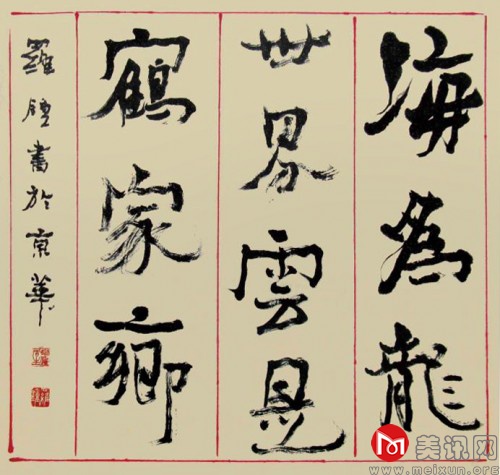 海為龍
世界雲是
鶴家鄉
羅 書於京華
美讯网
www.meixun.org